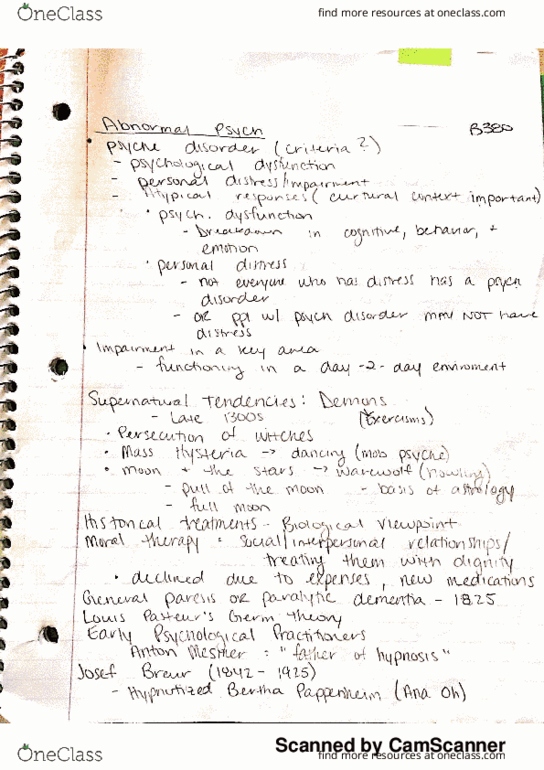 OneClass
find more resources at oneclass.com
Abnormal Psych
B380
• psyche disorder (criteria?)
- psychological dysfunction
- personal distress/impairment
- Atypical responses (cultural context important)
• psych. dysfunction
- Breakdown in cognitive, behavior, +
emotion
• personal distress
- not everyone who has distress has a psych
disorder
- OR ppl w/ psych disorder may NOT have
distress
• Impairment in a key area
- functioning in a day-2-day enviroment
Supernatural Tendencies: Demons
- Late 1300s (Exercisms)
• Persecution of witches
• Mass Hysteria -> dancing (mob psyche)
• moon + the stars -> warewolf (howling)
- pull of the moon - basis of astrology
- full moon
Historical treatments - Biological viewpoint
Moral therapy: social/interpersonal relationships/
treating them with dignity
• declined due to expenses, new medications
General paresis OR paralytic dementia - 1825
Louis Pasteur's Germ Theory
Early Psychological Practitioners
Anton Mesmer: "father of hypnosis"
Josef Breur (1842-1925)
- Hypnotized Bertha Pappenheim (Ana Oh)
Scanned by CamScanner
OneClass
find more resources at oneclass.com